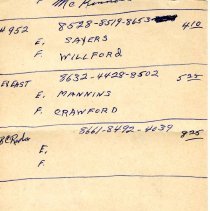 F McKenno
#952 8528-8519-8653 4.10
E. SAYERS
F. WILLFORD
EAST 8632-4428-8502 5.25
E. MANNING
F. CRAWFORD
8661-8492-4039 9.25
E.
F.